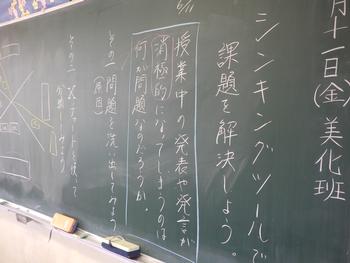 月十一日(金) 美化班
シンキングツールで
課題を解決しよう。
授業中の発表や発言が
消極的になってしまうのは
何が問題なのだろうか。
その一 問題を洗い出してみよう
(原因)
その二 Xチャートを使って
分類しよう